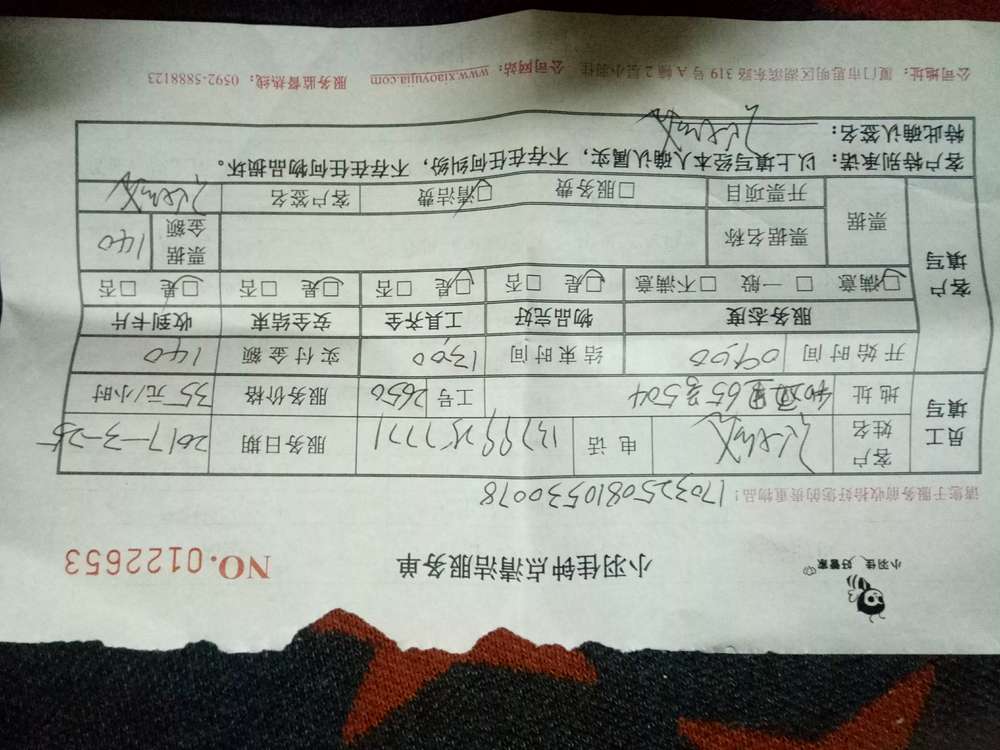 小羽佳 好管家
小羽佳钟点清洁服务单 NO.0122653
请您于服务前收拾好您的贵重物品！ 170325081053 0078
员工填写 客户姓名 电话 服务日期 2017-3-25
地址 504 工号 2650 服务价格 35 元/小时
客户填写 开始时间 09:00 结束时间 13:00 实付金额 140
服务态度 物品完好 工具齐全 安全结束 收到卡片
□满意 □一般 □不满意 □是 □否 □是 □否 □是 □否 □是 □否
票据 票据名称 票据金额 140
开票项目 □服务费 □清洁费 客户签名
客户特别承诺：以上填写经本人确认属实，不存在任何纠纷，不存在任何物品损坏。
特此确认签名：
公司地址：厦门市思明区湖滨东路 319 号 A 幢 2 层小羽佳 公司网站：www.xiaoyujia.com 服务监督热线：0592-5888123